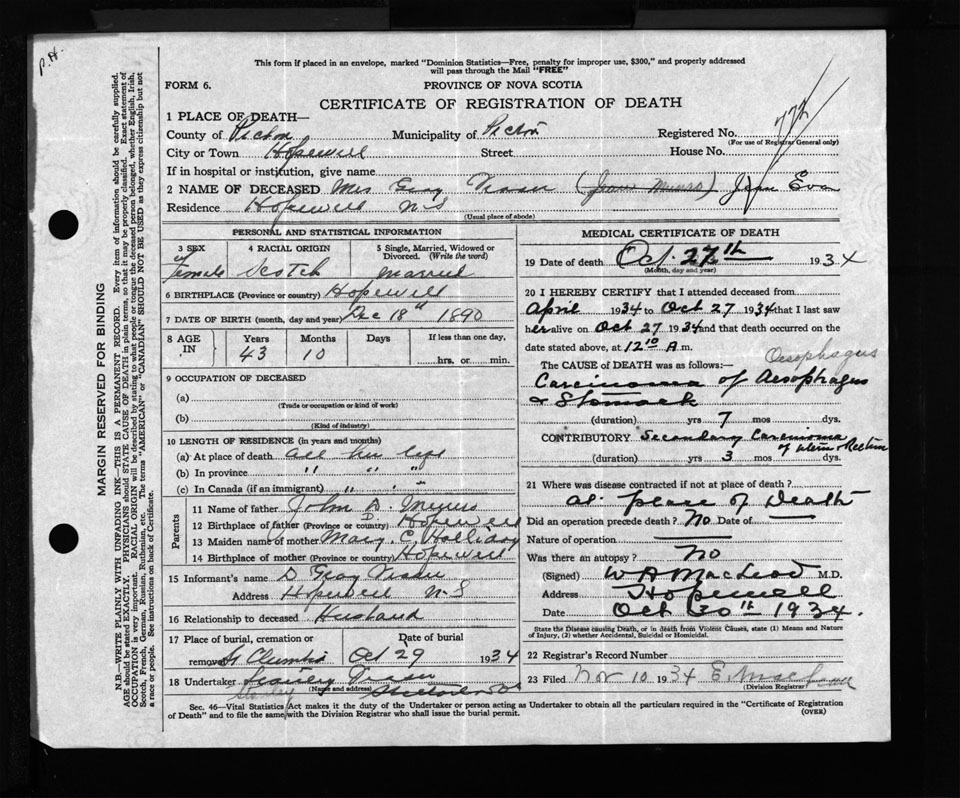 P.H.
This form if placed in an envelope, marked "Dominion Statistics—Free, penalty for improper use, $300," and properly addressed
will pass through the Mail "FREE"
FORM 6.
PROVINCE OF NOVA SCOTIA
CERTIFICATE OF REGISTRATION OF DEATH
1 PLACE OF DEATH—
County of Pictou Municipality of Pictou Registered No. 772
(For use of Registrar General only)
City or Town Hopewell Street House No.
If in hospital or institution, give name
2 NAME OF DECEASED Mrs Gray (Jean Munro) Jean
Residence Hopewell NS
(Usual place of abode)
PERSONAL AND STATISTICAL INFORMATION
3 SEX 4 RACIAL ORIGIN 5 Single, Married, Widowed or Divorced. (Write the word)
Female Scotch Married
6 BIRTHPLACE (Province or country) Hopewell
7 DATE OF BIRTH (month, day and year) Dec 18th 1890
8 AGE IN Years Months Days If less than one day,
43 10 hrs. or min.
9 OCCUPATION OF DECEASED
(a)
(Trade or occupation or kind of work)
(b)
(Kind of industry)
10 LENGTH OF RESIDENCE (in years and months)
(a) At place of death all her life
(b) In province " " "
(c) In Canada (if an immigrant) " " "
Parents
11 Name of father John D.
12 Birthplace of father (Province or country) Hopewell
13 Maiden name of mother Mary C. Holliday
14 Birthplace of mother (Province or country) Hopewell
15 Informant's name D Gray
Address Hopewell N-S
16 Relationship to deceased Husband
17 Place of burial, cremation or Date of burial
removal St Oct 29 1934
18 Undertaker Stanley
(Name and address)
MEDICAL CERTIFICATE OF DEATH
19 Date of death Oct. 27th 1934
(Month, day and year)
20 I HEREBY CERTIFY that I attended deceased from
April 1934 to Oct 27 1934 that I last saw
her alive on Oct 27 1934 and that death occurred on
date stated above, at 12 10 A m.
The CAUSE of DEATH was as follows:— Oesophagus
Carcinoma of Aesophagus
& Stomack
(duration) yrs 7 mos dys.
CONTRIBUTORY Secondary Carcinoma
of Uterus & Rectum
(duration) yrs 3 mos. dys.
21 Where was disease contracted if not at place of death?
At place of Death
Did an operation precede death? No Date of
Nature of operation
Was there an autopsy? No
(Signed) W A MacLeod M.D.
Address Hopewell
Date Oct 30th 1934.
State the Disease causing Death, or in death from Violent Causes, state (1) Means and Nature
of Injury, (2) whether Accidental, Suicidal or Homicidal.
22 Registrar's Record Number
23 Filed Nov 10 1934
(Division Registrar)
Sec. 46—Vital Statistics Act makes it the duty of the Undertaker or person acting as Undertaker to obtain all the particulars required in the "Certificate of Registration
of Death" and to file the same with the Division Registrar who shall issue the burial permit.
(OVER)
MARGIN RESERVED FOR BINDING
N.B.—WRITE PLAINLY WITH UNFADING INK—THIS IS A PERMANENT RECORD. Every item of information should be carefully supplied.
AGE should be stated EXACTLY. PHYSICIANS should STATE CAUSE OF DEATH in plain terms, so that it may be properly classified. Exact statement of
OCCUPATION is very important. RACIAL ORIGIN will be described by stating to what people or tongue the deceased person belonged, whether English, Irish,
Scotch, French, German, Russian, Ruthenian, etc. The terms "AMERICAN" or "CANADIAN" SHOULD NOT BE USED as they express citizenship but not
a race or people. See instructions on back of Certificate.